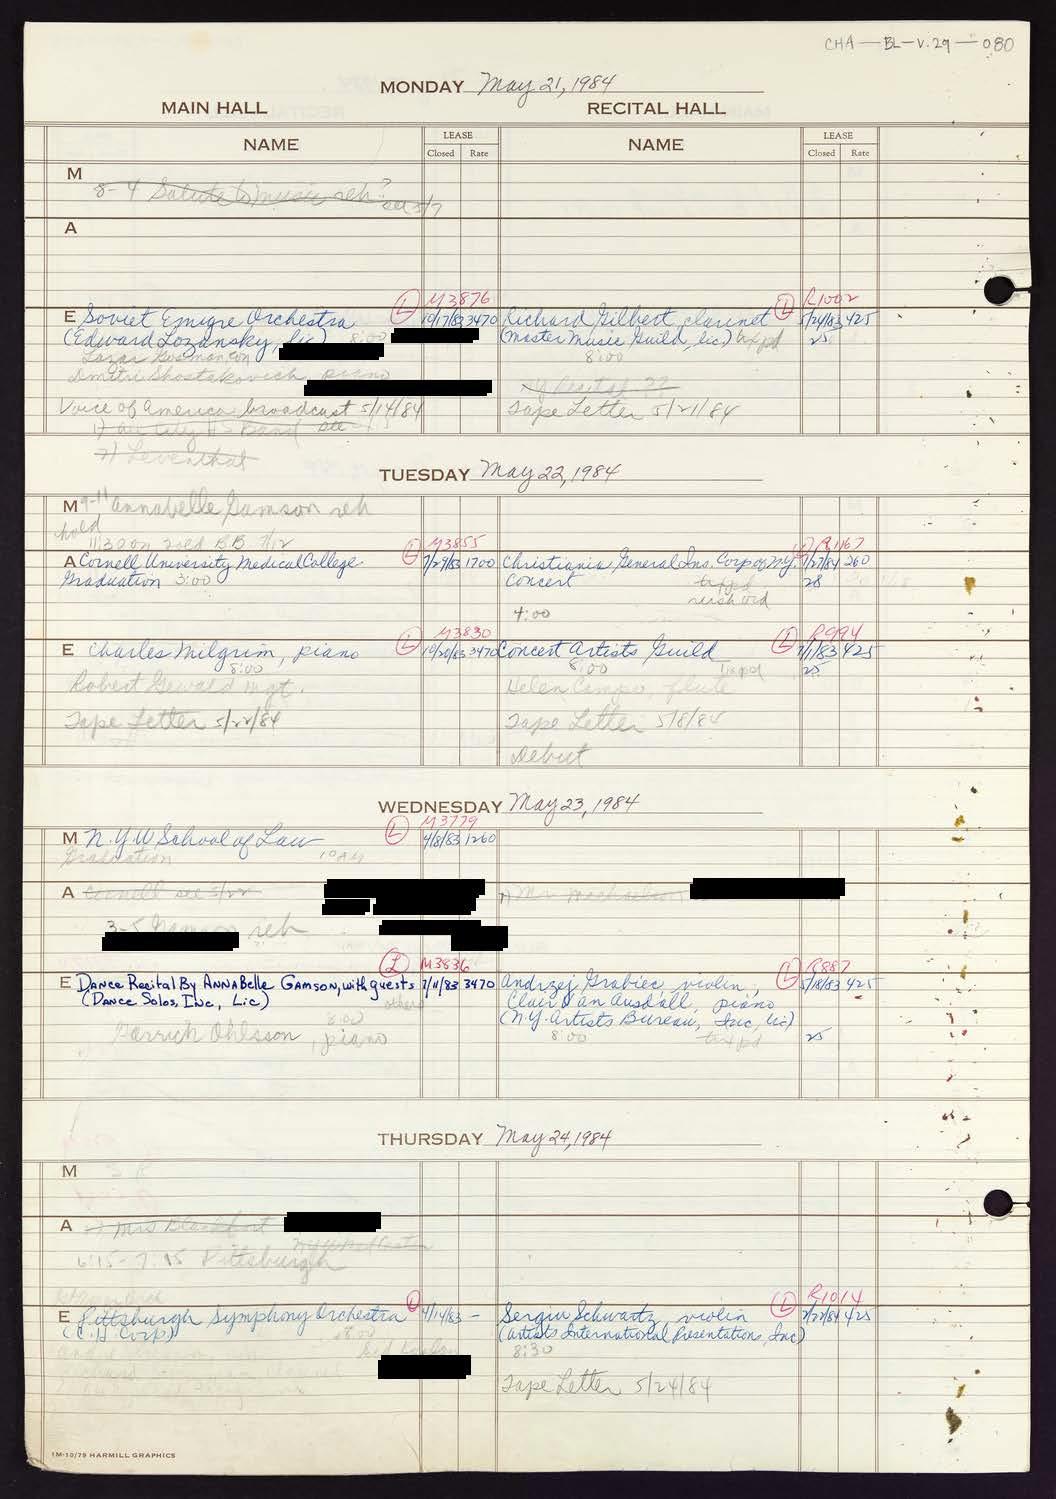 CHA—BL—V.29—080
MONDAY May 21, 1984
MAIN HALL RECITAL HALL
NAME LEASE NAME LEASE
Closed Rate Closed Rate
M
8-4 Salute to music reh?
A
M3876 R1002
E Soviet Emigre Orchestra L 10/17/83 3470 Richard Gilbert, clarinet L 5/24/83 425
(Edward Lozansky, lic) 8:00 (Master Music Guild, lic) tax pd 25
Lazar Gosman, con 8:00
Dmitri Shostakovich, piano
Voice of America broadcast 5/14/84 Tape Letter 5/21/84
2) Leventhal
TUESDAY May 22, 1984
M 9-11 Annabelle Gamson reh
hold
M3855 R1167
A Cornell University Medical College L 7/29/83 1700 Christiania General Ins. Corp of N.Y. L 2/27/84 260
Graduation 3:00 Concert 28
4:00
M3830 R994
E Charles Milgrim, piano L 10/20/83 3470 Concert Artists Guild L 7/1/83 425
8:00 8:00 tax pd 25
Robert Gewald mgt. Helen Campo, flute
Tape Letter 5/22/84 Tape Letter 5/8/84
Debut
WEDNESDAY May 23, 1984
M3779
M N.Y.U School of Law L 4/8/83 1260
Graduation 10 AM
A Cornell see 5/22
3-5 Gamson reh
M3836 R887
E Dance Recital By AnnaBelle Gamson, with guests L 7/11/83 3470 Andrzej Grabiec, violin L 5/18/83 425
(Dance Solos, Inc, Lic) others Clair Van Ausdall, piano
8:00 (N.Y. Artists Bureau, Inc, lic)
Garrick Ohlsson, piano 8:00 tax pd 25
THURSDAY May 24, 1984
M
A
6:15-7:15 Pittsburgh
R1014
E Pittsburgh Symphony Orchestra L 4/14/83 - Sergiu Schwartz, violin L 2/27/84 425
(C.H Corp) (Artists International Presentations, Inc)
8:00 8:30
Tape Letter 5/24/84
1M-10/79 HARMILL GRAPHICS